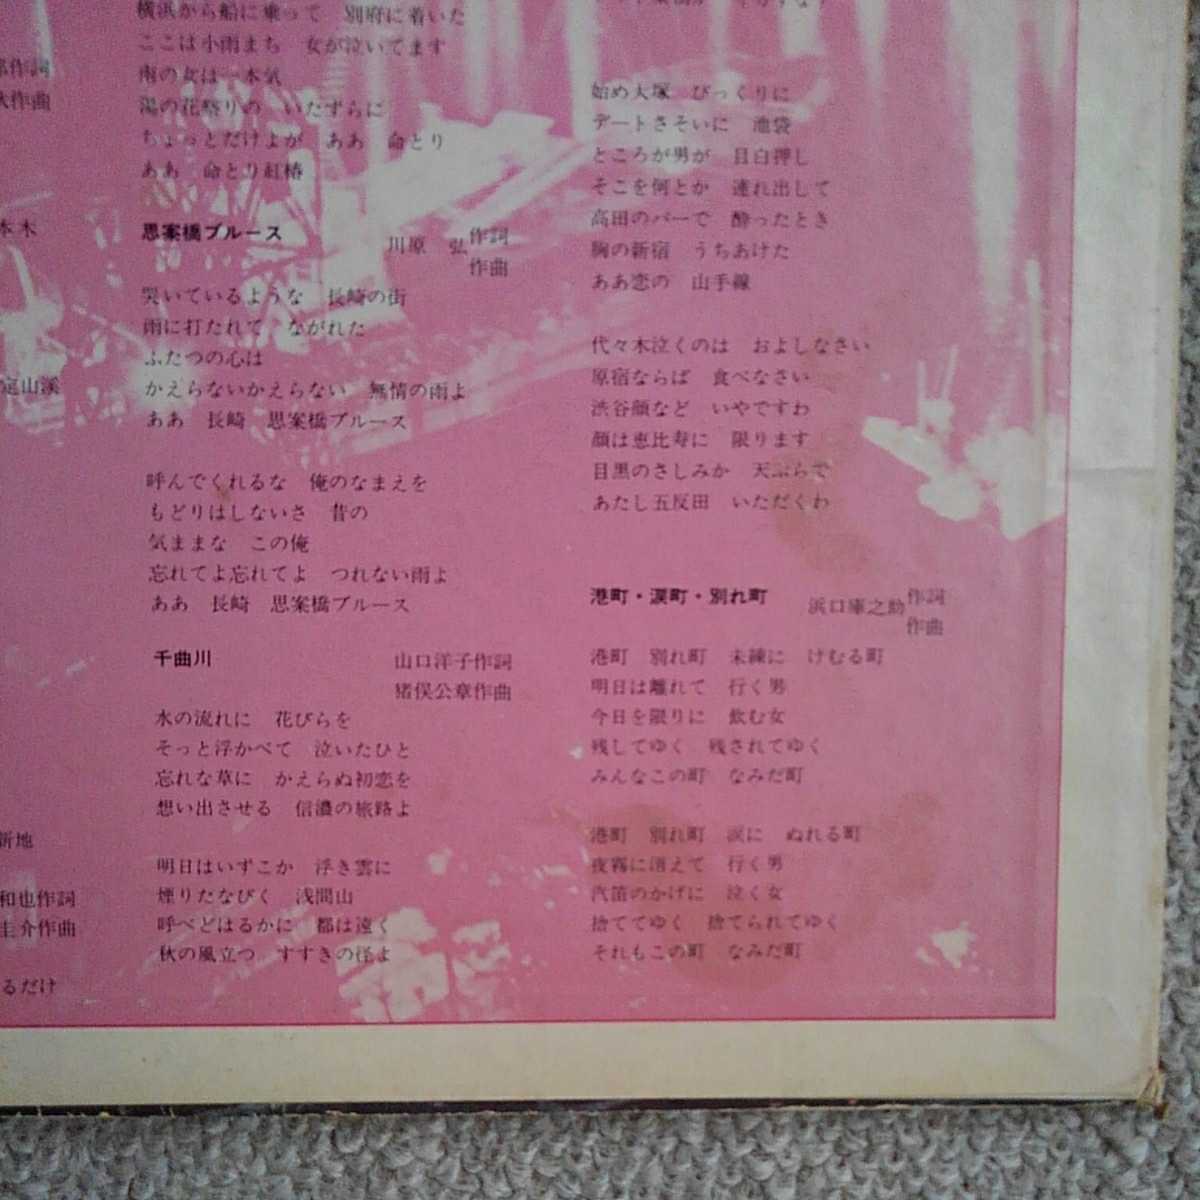 郎作詞
大作曲
本木
定山渓
新地
和也作詞
圭介作曲
るだけ
横浜から船に乗って　別府に着いた
ここは小雨まち　女が泣いてます
南の女は一本気
湯の花祭りの　いたずらに
ちょっとだけよが　ああ　命とり
ああ　命とり紅椿
思案橋ブルース
川原　弘 作詞
作曲
哭いているような　長崎の街
雨に打たれて　ながれた
ふたつの心は
かえらないかえらない　無情の雨よ
ああ　長崎　思案橋ブルース
呼んでくれるな　俺のなまえを
もどりはしないさ　昔の
気ままな　この俺
忘れてよ忘れてよ　つれない雨よ
ああ　長崎　思案橋ブルース
千曲川
山口洋子作詞
猪俣公章作曲
水の流れに　花びらを
そっと浮かべて　泣いたひと
忘れな草に　かえらぬ初恋を
想い出させる　信濃の旅路よ
明日はいずこか　浮き雲に
煙りたなびく　浅間山
呼べどはるかに　都は遠く
秋の風立つ　すすきの径よ
始め大塚　びっくりに
デートさそいに　池袋
ところが男が　目白押し
そこを何とか　連れ出して
高田のバーで　酔ったとき
胸の新宿　うちあけた
ああ恋の　山手線
代々木泣くのは　およしなさい
原宿ならば　食べなさい
渋谷顔など　いやですわ
顔は恵比寿に　限ります
目黒のさしみか　天ぷらで
あたし五反田　いただくわ
港町・涙町・別れ町
浜口庫之助 作詞
作曲
港町　別れ町　未練に　けむる町
明日は離れて　行く男
今日を限りに　飲む女
残してゆく　残されてゆく
みんなこの町　なみだ町
港町　別れ町　涙に　ぬれる町
夜霧に消えて　行く男
汽笛のかげに　泣く女
捨ててゆく　捨てられてゆく
それもこの町　なみだ町